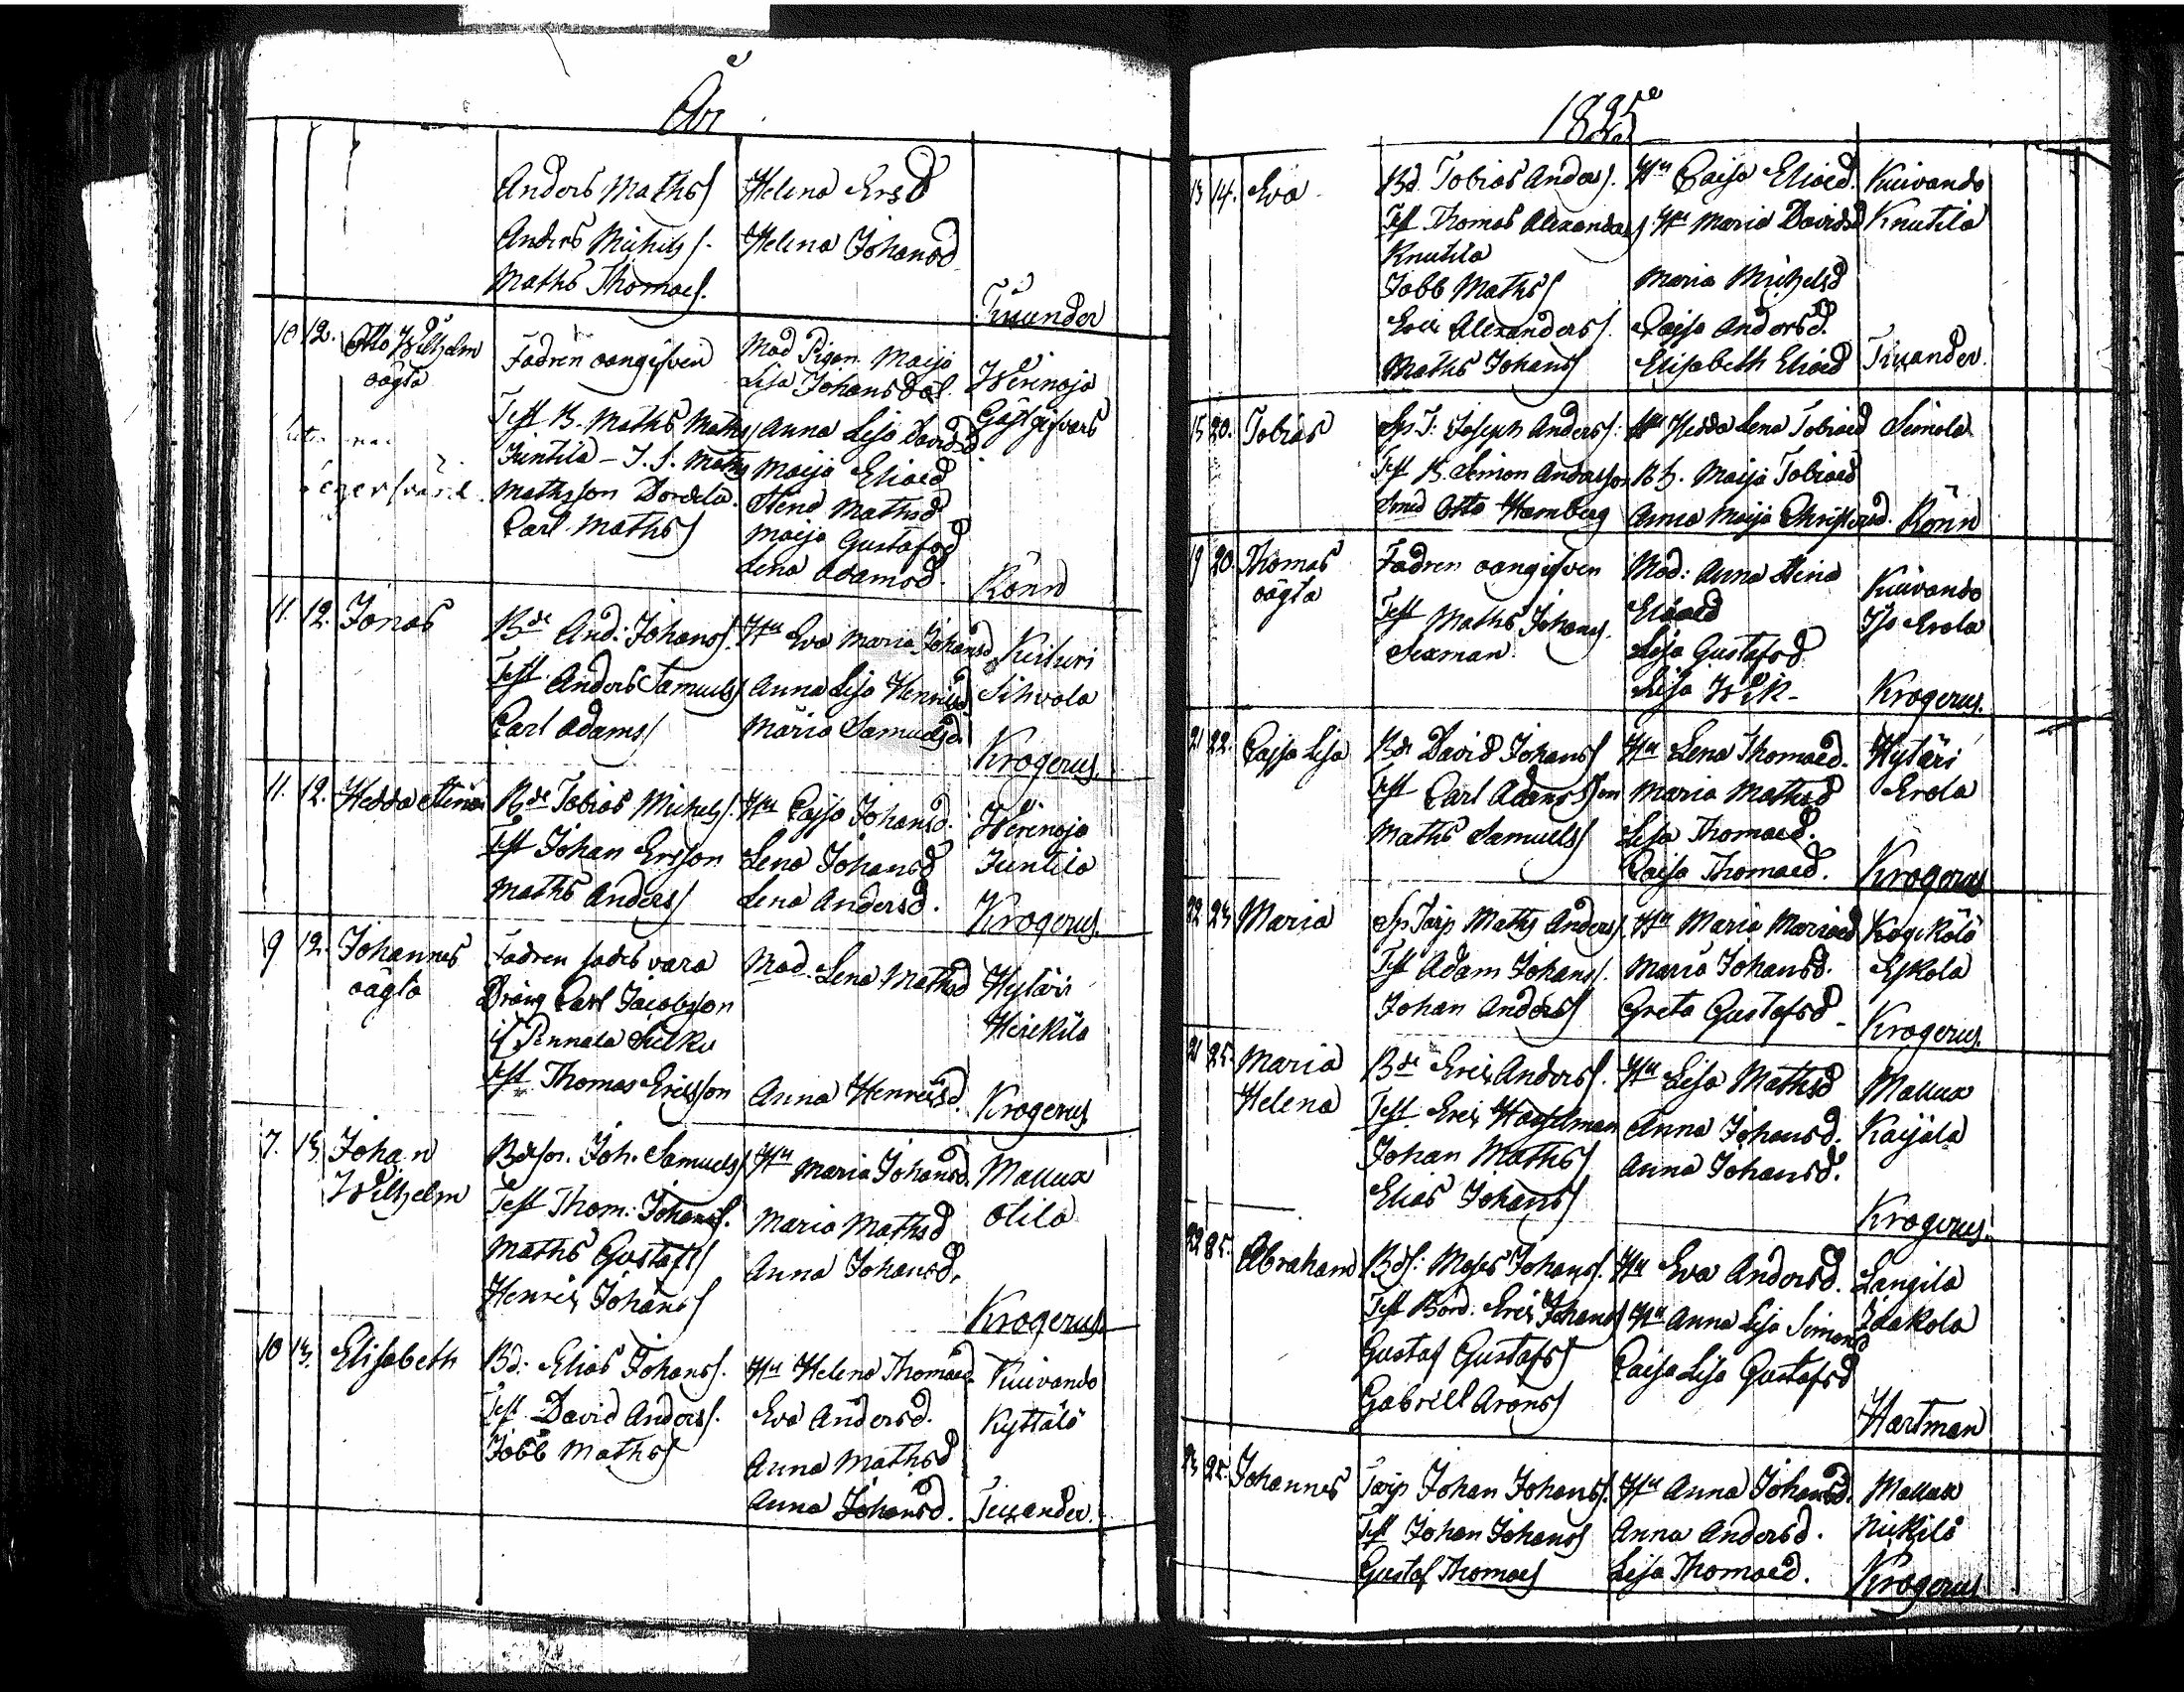 År
Anders Mathss Helena Ersd
Anders Michelss. Helena Johansd
Maths Thomaes.
Tiuander
10 12. Otto Wilhelm Fadren oangifven Mod Pigan Maija
oägta Lisa Johansdot. Werinoja
Test B. Maths Mathss Anna Lisa Davidsd Gästgifvars
Juntila - I. S. Maths Maija Eliaed
Mathsson Dordela. Stina Mathsd
Carl Mathss Maija Gustafsd
Lena Adamsd. Rönn
11. 12. Jonas Bde And. Johanss. Hu Eva Maria Johansd Keituri
Test Anders Samuelss Anna Lisa Henricsd Sihvola
Carl Adamss Maria Samuelsd.
Krogerus.
11. 12. Hedda Stina Bde Tobias Michelss. Hu Caisa Johansd. Werinoja
Test Johan Ersson Lena Johansd Juntila
Maths Anderss Lena Andersd.
Krogerus.
9 12. Johannes Fadren sades vara Mod. Lena Mathsd Hytäri
oägta Dräng Carl Jacobsson Heickilä
if Pennala
Test Thomas Ericsson Anna Henricsd. Krogerus.
7. 13. Johan Bdeson. Joh. Samuelss Hu Maria Johansd. Mallux
Wilhelm Test Thom: Johanss. Maria Mathsd Otila
Maths Gustafss Anna Johansd.
Henric Johanss
Krogerus.
10 13. Elisabeth Bd: Elias Johanss. Hu Helena Thomaed. Kuivando
Test David Anderss. Eva Andersd. Kyttälä
Jobb Mathss Anna Mathsd
Anna Johansd. Tiuxander.
1825
13 14. Eva Bd. Tobias Anderss. Hu Caisa Eliaed. Kuivando
Test Thomas Alexanderss Hu Maria Davidsd Knutila
Knutila
Jobb Mathss Maria Michelsd
Eric Alexanderss. Caisa Andersd.
Maths Johanss Elisabeth Eliaed Tiuxander.
15 20. Tobias Sps T: Joseph Anderss: Hu Hedda Lena Tobiaed Seinola
Test B. Simon Andersson B h. Maija Tobiaed
Smed Otto Hamberg Anna Maija Christersd. Rönn
19 20. Thomas Fadren oangifven Mod: Anna Stina
oägta Eliaed Kuivando
Test Maths Johanss. Lisa Gustafsd Iso Erola
Seaman. Lisa Wik- Krogerus.
21 22. Cajsa Lisa Bde David Johanss Hu Lena Thomaed. Hytäri
Test Carl Adamsson Maria Mathsd Erola
Maths Samuelss Lisa Thomaed.
Caisa Thomaed. Krogerus
22 23 Maria Sps Torp Maths Anderss. Hu Maria Mariaed
Test Adam Johanss. Maria Johansd. Eskola
Johan Anderss Greta Gustafsd. Krogerus.
21 25. Maria Bde Eric Anderss. Hu Lisa Mathsd Mallux
Helena Test Eric Hasselman Anna Johansd. Kaijala
Johan Mathss Anna Johansd.
Elias Johanss
Krogerus.
22 25. Abraham Bds: Moses Johanss. Hu Eva Andersd. Langila
Test Bond. Eric Johanss Hu Anna Lisa Simonsd Jaakola
Gustaf Gustafss Caisa Lisa Gustafsd
Gabriell Aronss Hartman
23 25. Johannes Torp Johan Johanss. Hu Anna Johansd. Mallux
Test Johan Johanss Anna Andersd. Nickilä
Gustaf Thomaes Lisa Thomaed. Krogerus